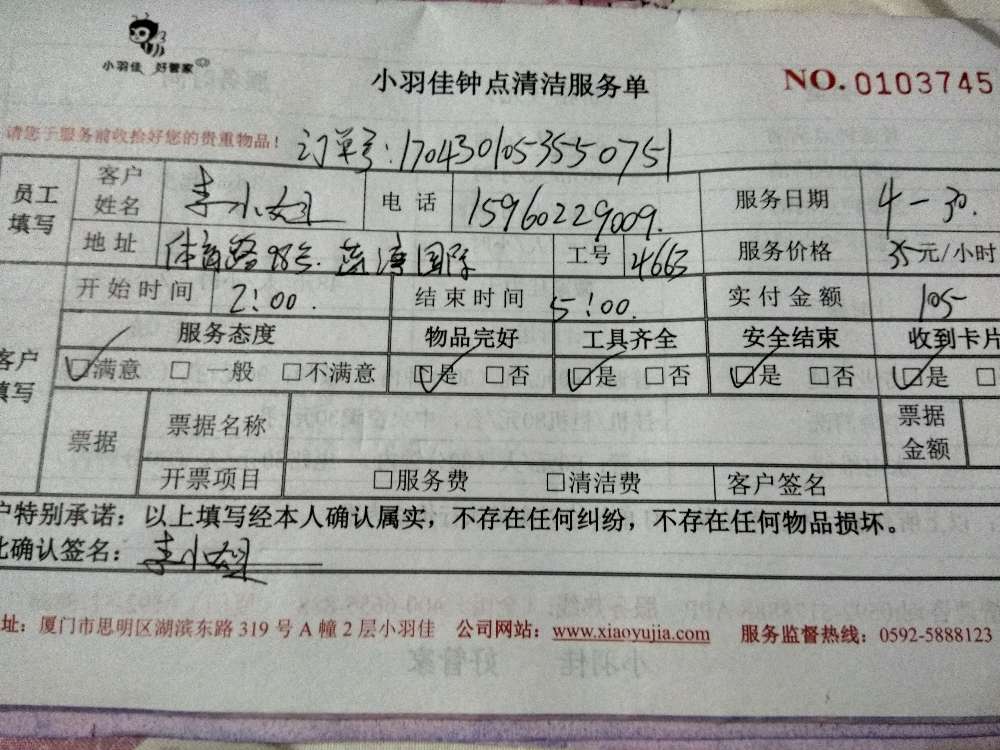 小羽佳 好管家
小羽佳钟点清洁服务单
NO. 0103745
请您于服务前收拾好您的贵重物品！
订单号:1704301053550751
员工填写 客户姓名 李小姐 电话 15960229009. 服务日期 4-30.
地址 体育路98号 国际 工号 4663 服务价格 35元/小时
开始时间 2:00. 结束时间 5:00. 实付金额 105
客户填写 服务态度 物品完好 工具齐全 安全结束 收到卡片
☑满意 □一般 □不满意 ☑是 □否 ☑是 □否 ☑是 □否 ☑是 □
票据 票据名称 票据金额
开票项目 □服务费 □清洁费 客户签名
户特别承诺：以上填写经本人确认属实，不存在任何纠纷，不存在任何物品损坏。
此确认签名：李小姐
址：厦门市思明区湖滨东路 319 号 A 幢 2 层小羽佳 公司网站：www.xiaoyujia.com 服务监督热线：0592-5888123